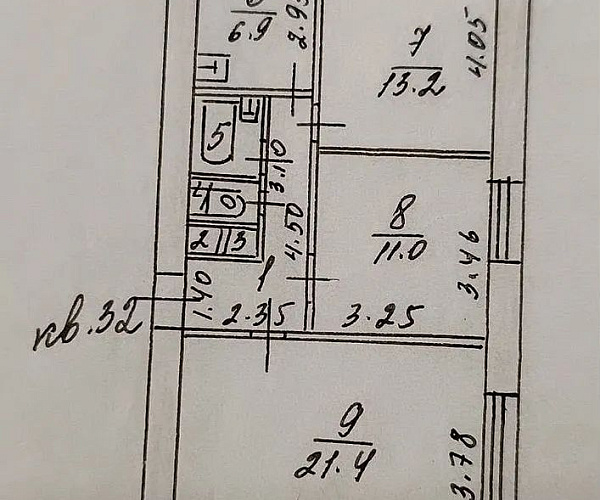 6.9
2.9
7
13.2
4.05
5
3.10
4
2
3
4.50
8
11.0
3.46
1
1.40
2.35
3.25
кв.32
9
21.4
3.78